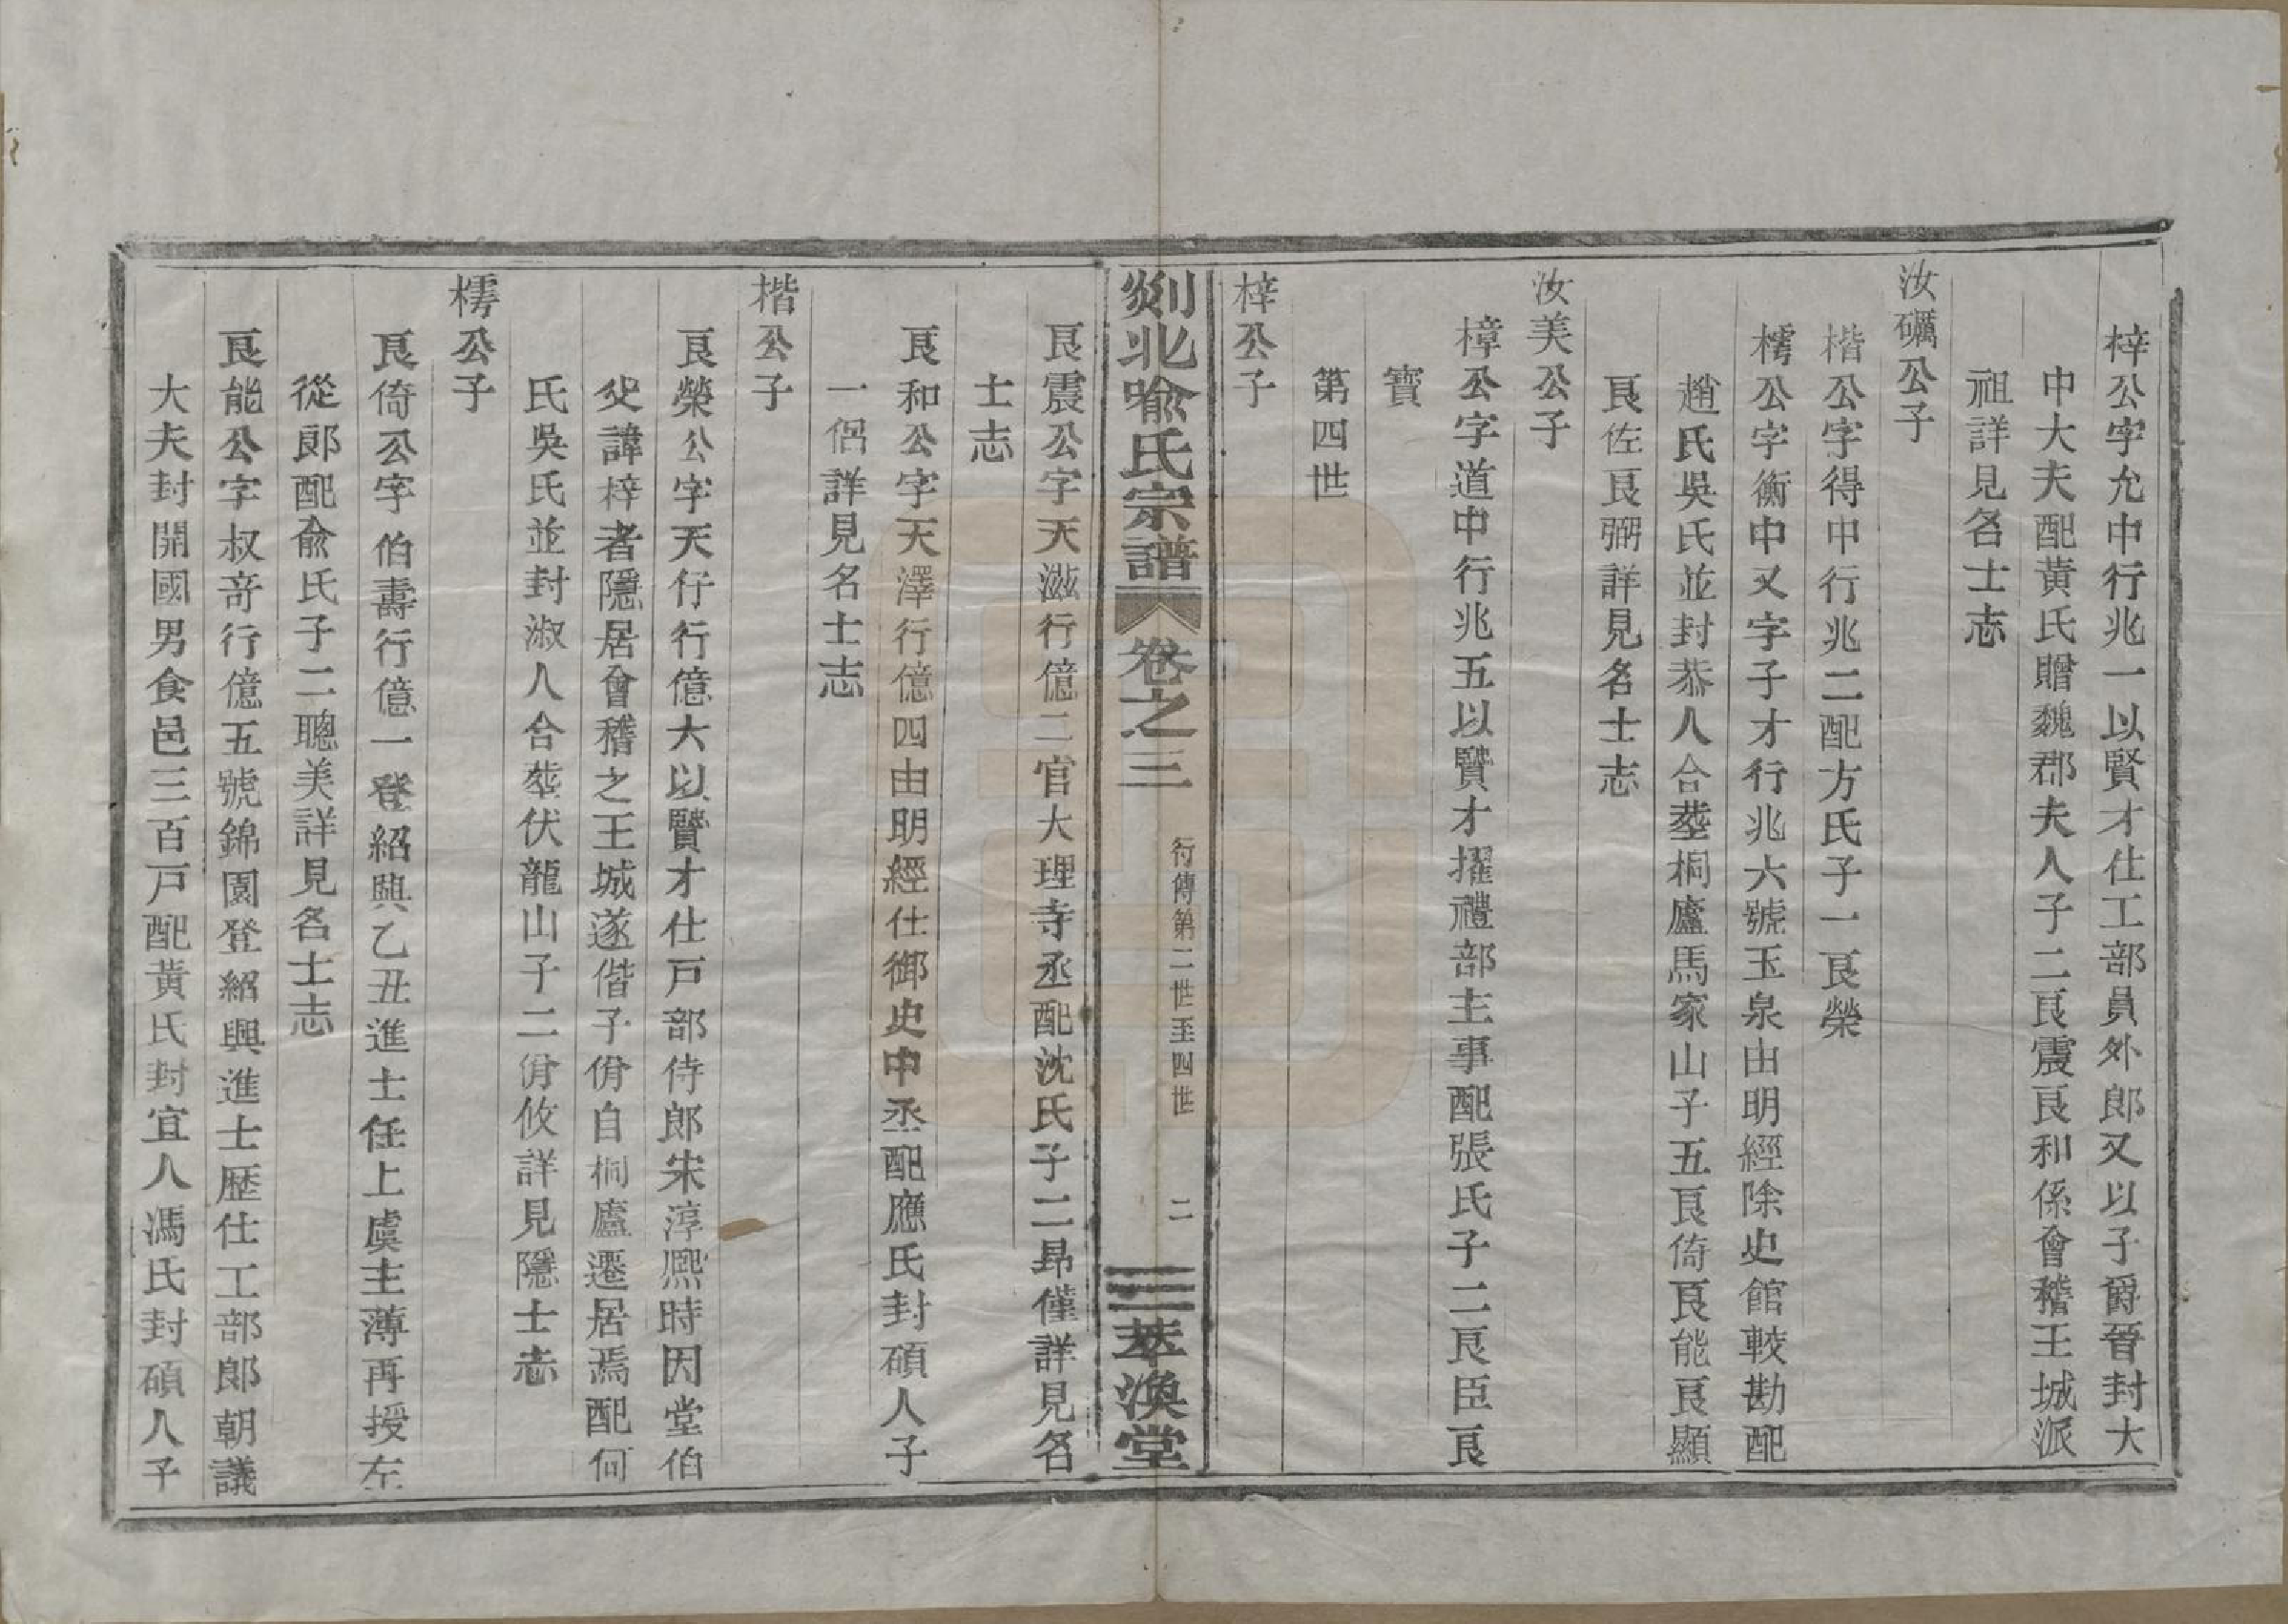 梓公字允中行兆一以賢才仕工部員外郎又以子爵晉封大
中大夫配黃氏贈魏郡夫人子二良震良和係會稽王城派
祖詳見名士志
汝礪公子
楷公字得中行兆二配方氏子一良榮
樗公字衡中又字子才行兆六號玉泉由明經除史館較勘配
趙氏吳氏並封恭人合塟桐廬馬家山子五良倚良能良顯
良佐良弼詳見名士志
汝美公子
樟公字道中行兆五以賢才擢禮部主事配張氏子二良臣良
寶
第四世
梓公子
剡北喻氏宗譜
卷之三
行傳第二世至四世
二
萃渙堂
良震公字天滋行億二官大理寺丞配沈氏子二昻僅詳見名
士志
良和公字天澤行億四由明經仕御史中丞配應氏封碩人子
一侶詳見名士志
楷公子
良榮公字天仔行億大以賢才仕戸部侍郎宋淳熙時因堂伯
父諱梓者隱居會稽之王城遂偕子佾自桐廬遷居焉配何
氏吳氏並封淑人合塟伏龍山子二佾攸詳見隱士志
樗公子
良倚公字伯壽行億一登紹興乙丑進士任上虞主薄再授左
從郎配俞氏子二聰美詳見名士志
良能公字叔奇行億五號錦園登紹興進士歷仕工部郎朝議
大夫封開國男食邑三百戸配黃氏封宜人馮氏封碩人子